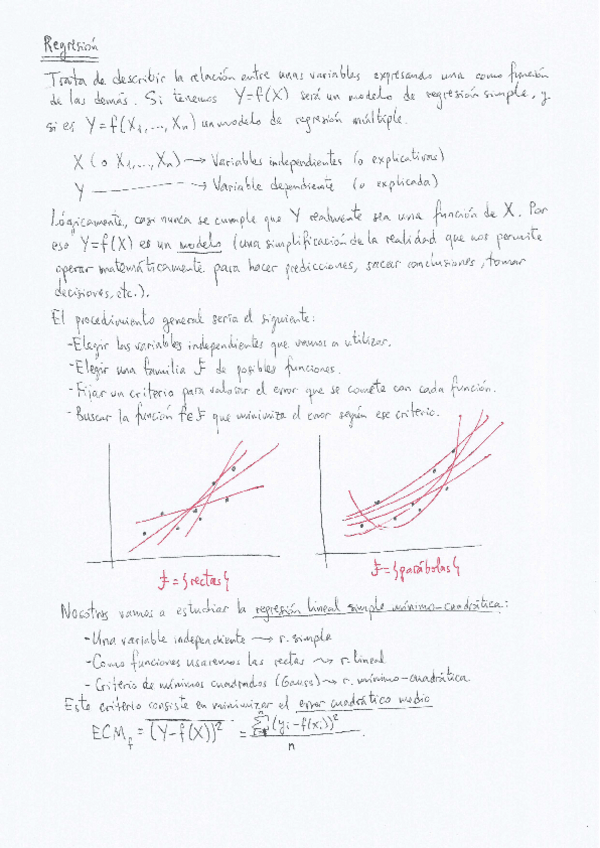 Regresión
Trata de describir la relación entre unas variables expresando una como función
de las demás. Si tenemos Y=f(X) será un modelo de regresión simple, y
si es Y=f(X₁,...,Xₙ) un modelo de regresión múltiple.
X (o X₁,...,Xₙ) → Variables independientes (o explicativas)
Y → Variable dependiente (o explicada)
Lógicamente, casi nunca se cumple que Y realmente sea una función de X. Por
eso Y=f(X) es un modelo (una simplificación de la realidad que nos permite
operar matemáticamente para hacer predicciones, sacar conclusiones, tomar
decisiones, etc.).
El procedimiento general sería el siguiente:
-Elegir las variables independientes que vamos a utilizar.
-Elegir una familia F de posibles funciones.
-Fijar un criterio para valorar el error que se comete con cada función.
-Buscar la función f∈F que minimiza el error según ese criterio.
F={rectas}
F={parábolas}
Nosotros vamos a estudiar la regresión lineal simple mínimo-cuadrática:
-Una variable independiente → r. simple
-Como funciones usaremos las rectas → r. lineal
-Criterio de mínimos cuadrados (Gauss) → r. mínimo-cuadrática
Este criterio consiste en minimizar el error cuadrático medio
ECM_f = (Y-f(X))² = Σ(yᵢ-f(xᵢ))² / n.